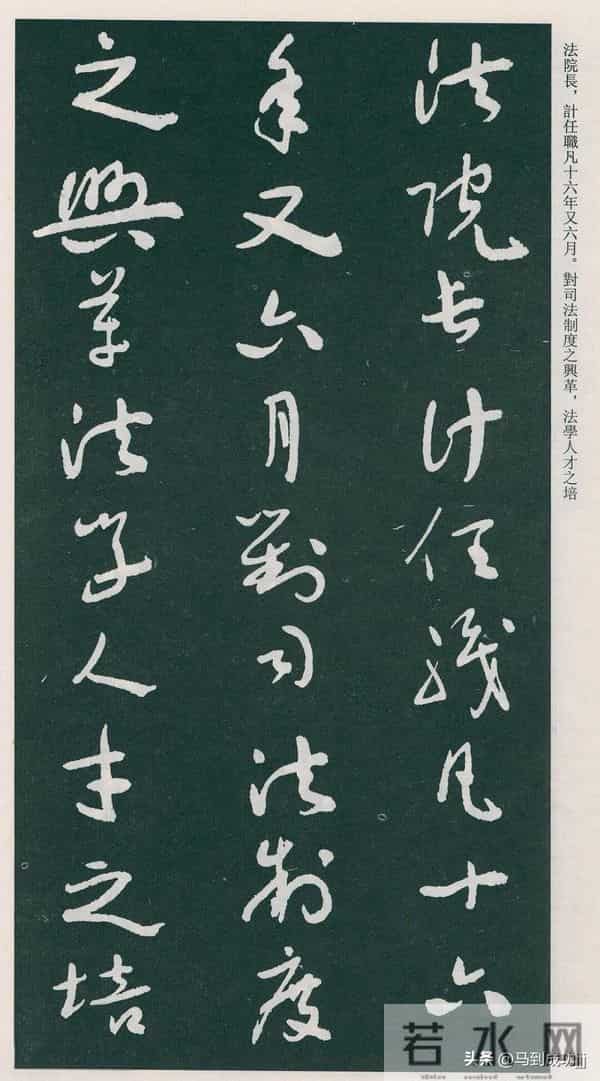 法院長計任職凡十六
年又六月對司法制度
之興革法學人才之培
法院長，計任職凡十六年又六月。對司法制度之興革，法學人才之培
若水网
头条 @马到成功jjj